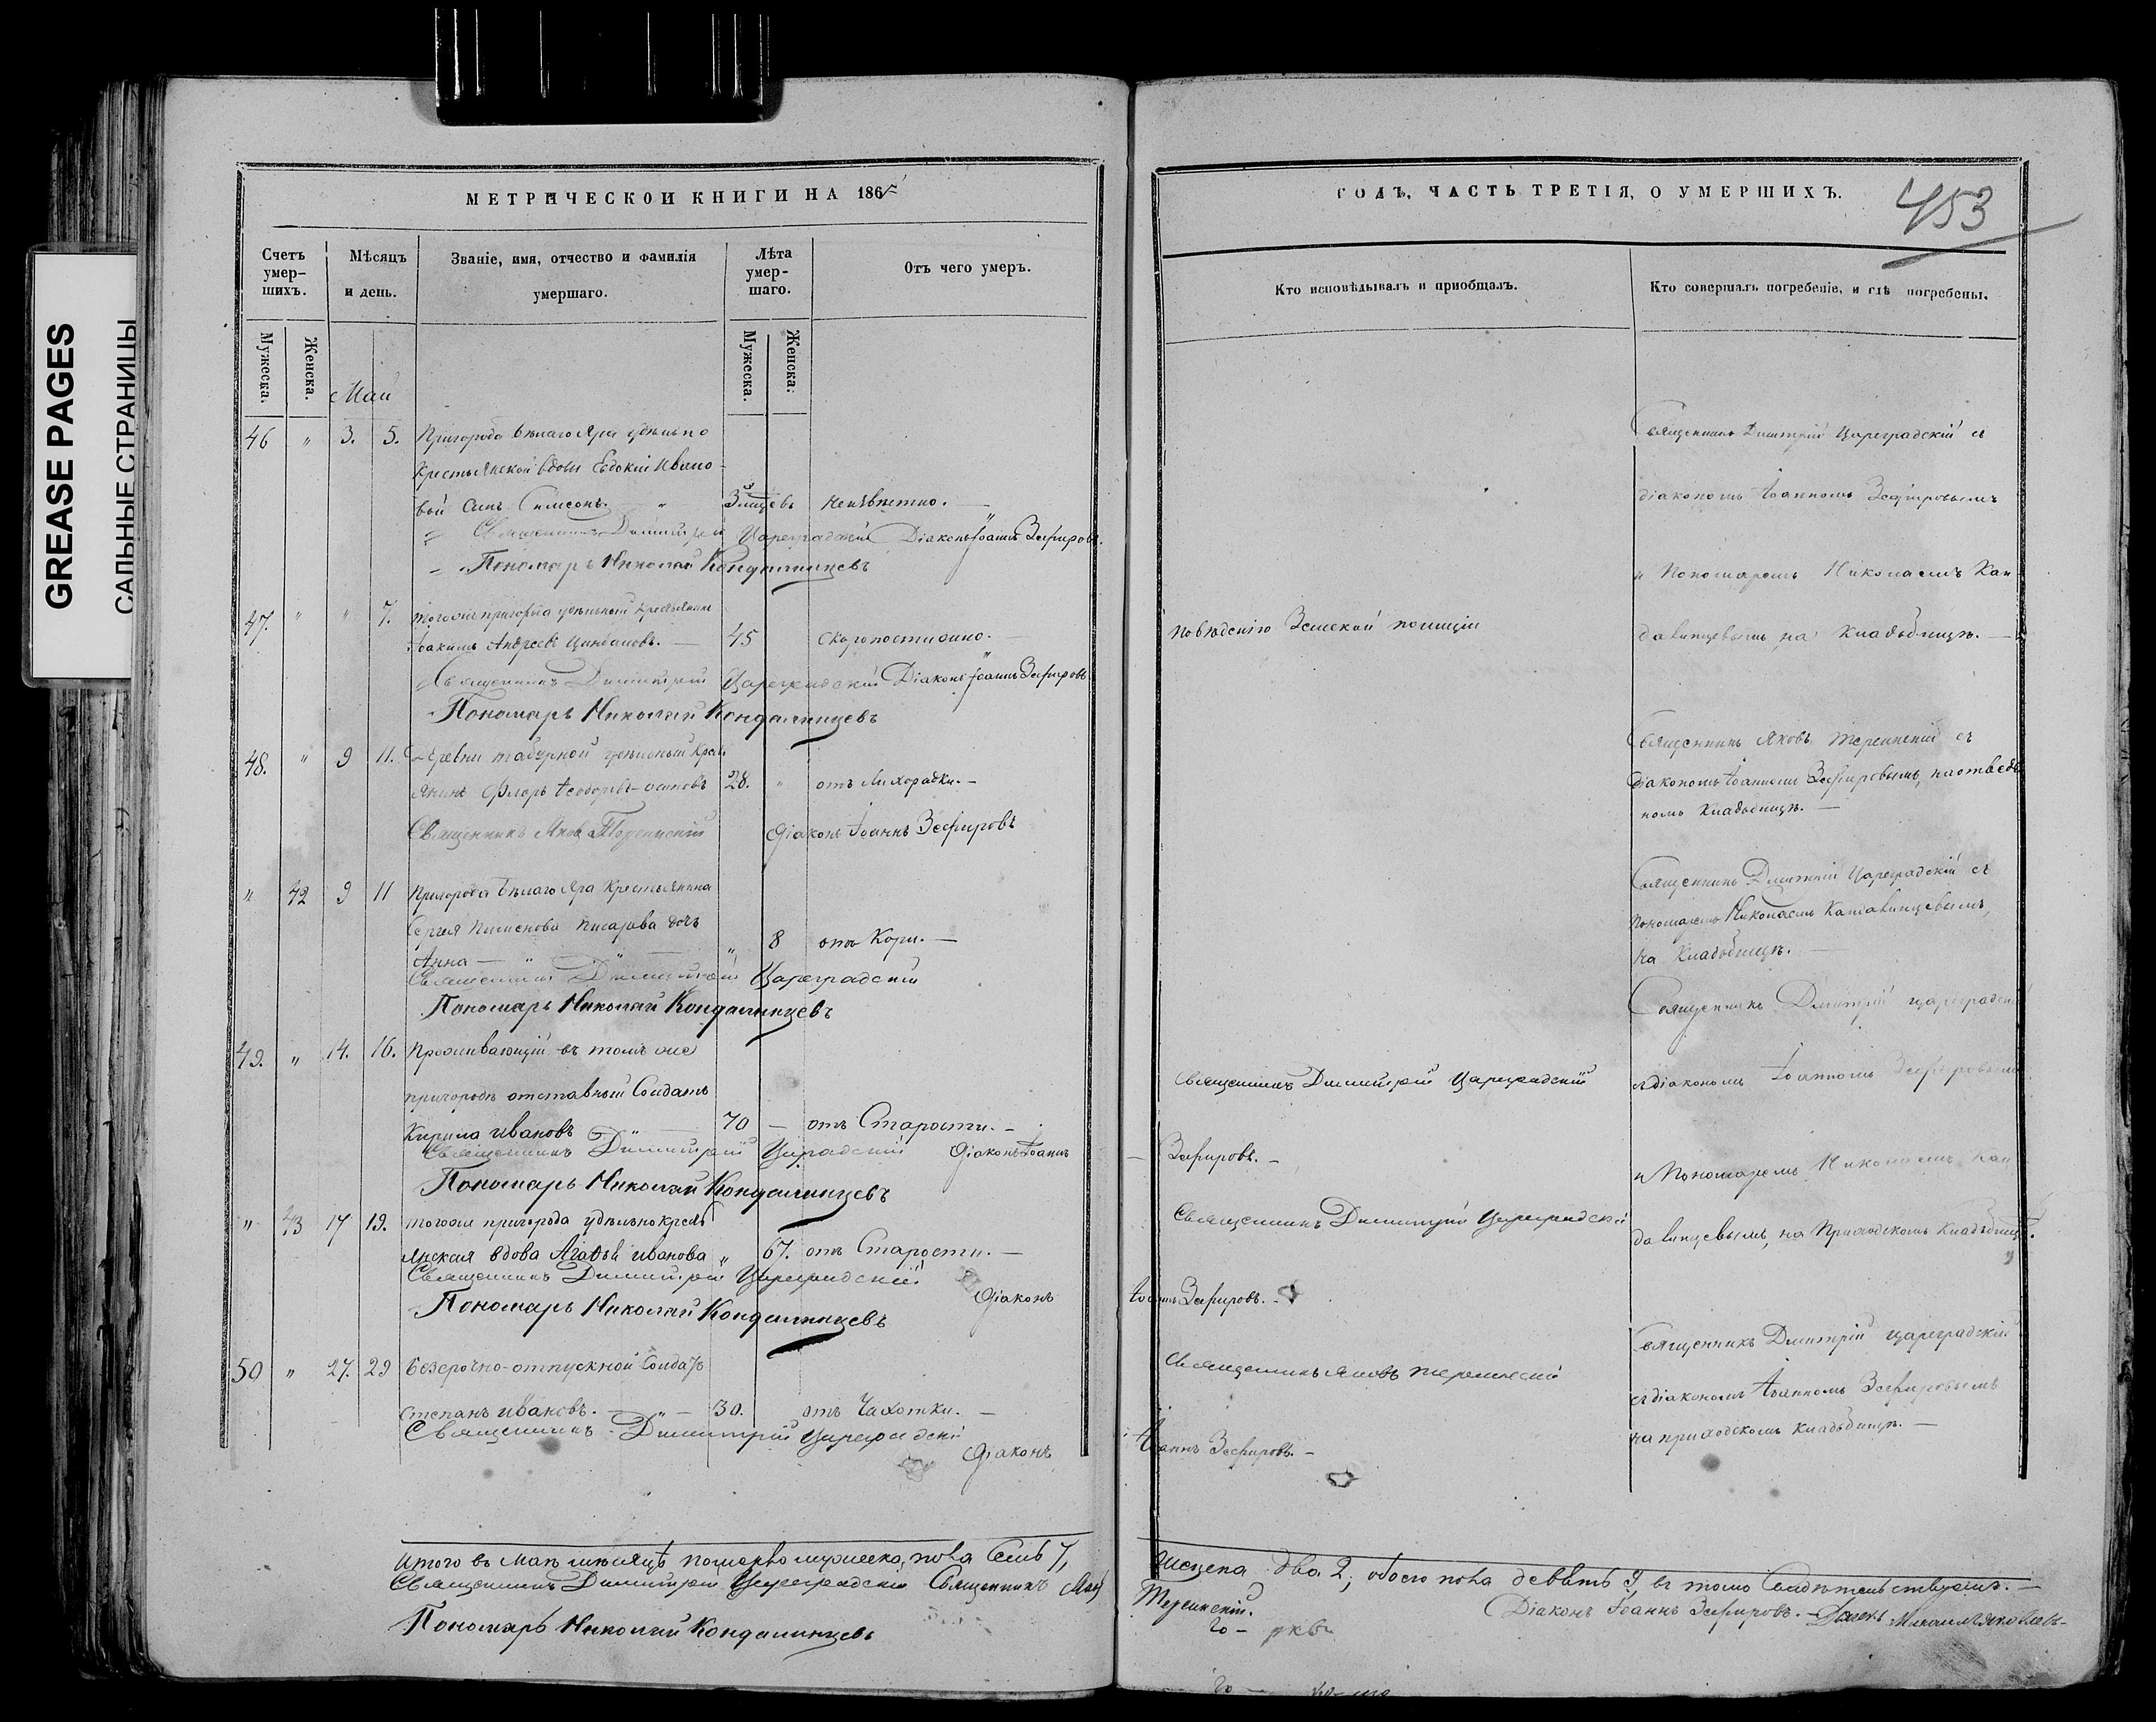 GREASE PAGES
САЛЬНЫЕ СТРАНИЦЫ
МЕТРИЧЕСКОЙ КНИГИ НА 186
Счетъ умер-
шихъ.
Мѣсяцъ
и день.
Званіе, имя, отчество и фамилія
умершаго.
Лѣта
умер-
шаго.
Отъ чего умеръ.
Мужеска.
Женска.
Мужеска.
Женска.
Май
46 " 3. 5. Пригорода Бѣлаго Яра удѣльно
крестьянской вдовы Евдокіи Ивано-
вой сынъ Симеонъ. " 3 мѣсцевъ неизвѣстно.
Священникъ Димитрій Цареградскій Діаконъ Іоаннъ Зефировъ.
Пономарь Николай Кондалинцевъ
47. " " 7. Тогоже пригорода удѣльный крестьянинъ
Іоакимъ Андреевъ 45 скоропостижно.
Священникъ Димитрій Цареградскій Діаконъ Іоаннъ Зефировъ
Пономарь Николай Кондалинцевъ
48. " 9 11. Деревни удѣльный крестъ
янинъ Флоръ Ѳеодоровъ Осиповъ 28. " отъ Лихорадки.
Священникъ Яковъ Терсинскій Діаконъ Іоаннъ Зефировъ
" 42 9 11 Пригорода Бѣлаго Яра крестьянина
Сергія Пименова Писарева дочь
Анна " " " 8 отъ Кори.
Священникъ Димитрій Цареградскій
Пономарь Николай Кондалинцевъ
49. " 14. 16. Проживающій въ томъ же
пригородѣ отставный Солдатъ
Кирила Ивановъ " 70 отъ Старости.
Священникъ Димитрій Цареградскій Діаконъ Іоаннъ
Пономарь Николай Кондалинцевъ
" 43 17 19. Тогоже пригорода удѣльнокресть
янская вдова Агаѳья Иванова " 67. отъ Старости.
Священникъ Димитрій Цареградскій
Діаконъ
Пономарь Николай Кондалинцевъ
50 " 27. 29 Безсрочно-отпускной Солдатъ
Степанъ Ивановъ. " 30. отъ Чахотки.
Священникъ Димитрій Цареградскій
Діаконъ
Итого въ Маѣ мѣсяцѣ померло мужеска пола Семь 7,
Священникъ Димитрій Цареградскій Священникъ Яковъ
Пономарь Николай Кондалинцевъ
ГОДЪ, ЧАСТЬ ТРЕТІЯ, О УМЕРШИХЪ.
453
Кто исповѣдывалъ и пріобщалъ.
Кто совершалъ погребеніе, и гдѣ погребены.
Священникъ Димитрій Цареградскій съ
діакономъ Іоанномъ Зефировымъ
и Пономаремъ Николаемъ Кан
Земской полиціи
давинцевымъ, на Кладбищѣ.
Священникъ Яковъ Терсинскій съ
діакономъ Іоанномъ Зефировымъ, на отведен
номъ Кладбищѣ.
Священникъ Димитрій Цареградскій съ
Пономаремъ Николаемъ Кандавинцевымъ,
на Кладбищѣ.
Священникъ Димитрій Цареградскій
Священникъ Димитрій Цареградскій
съ діакономъ Іоанномъ Зефировымъ
Зефировъ.
и Пономаремъ Николаемъ Кан
Священникъ Димитрій Цареградскій
давинцевымъ, на Приходскомъ Кладбищѣ.
Іоаннъ Зефировъ.
Священникъ Димитрій Цареградскій
Священникъ Яковъ Терсинскій
съ діакономъ Іоанномъ Зефировымъ
на приходскомъ Кладбищѣ.
Іоаннъ Зефировъ.
Женска два 2, обоего пола девять 9, въ томъ свидѣтельствуемъ.
Терсинскій.
Діаконъ Іоаннъ Зефировъ.